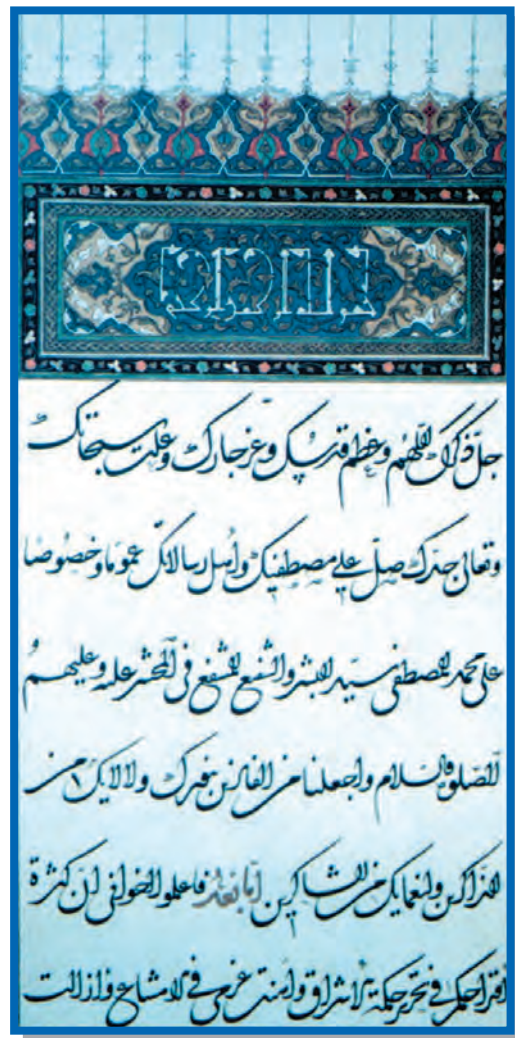 جل ذكرك اللهم وعظم قدسك وعز جارك وعلت سبحاتك
وتعالى جدك صل على مصطفيك وأهل رسالاتك عموما وخصوصا
على محمد المصطفى سيد البشر والشفيع المشفع فى المحشر عليه وعليهم
الصلوة والسلام واجعلنا من الفائزين بنورك ولالائك من
الذاكرين ولنعمايك من الشاكرين أما بعد فاعلموا اخوانى ان كثرة
اقتراحكم فى تحرير حكمة الاشراق وأهنت عزمى فى الامتناع وازالت